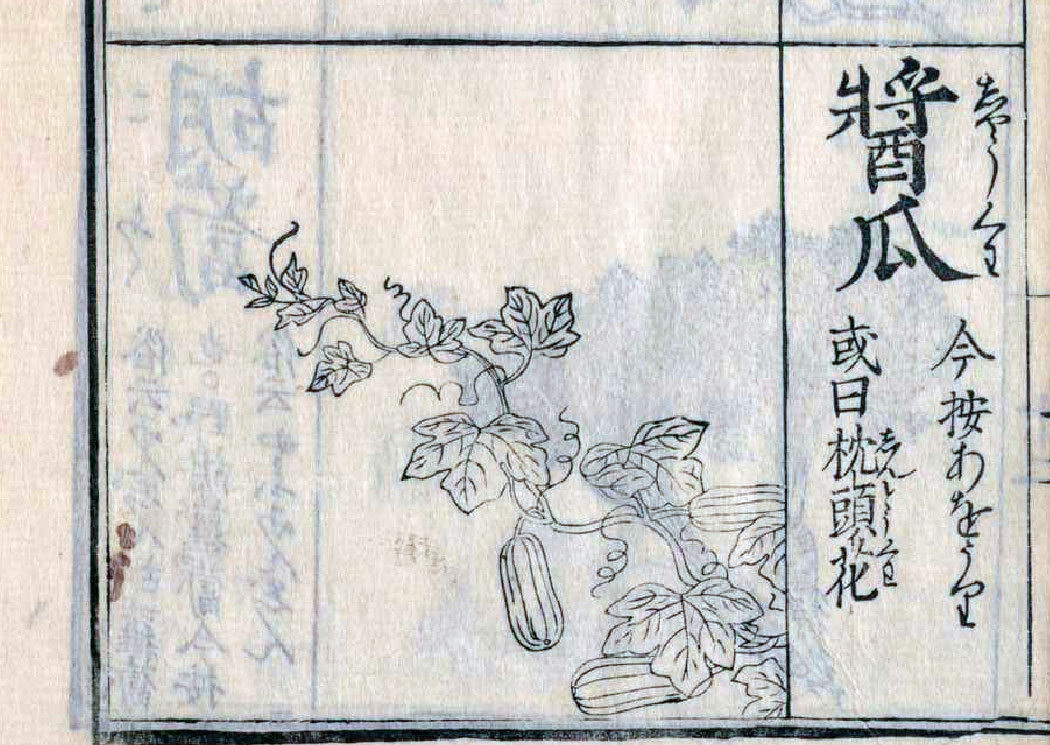 しやうくわ
醬瓜
今按あをうり
しんとうくわ
或曰枕頭花